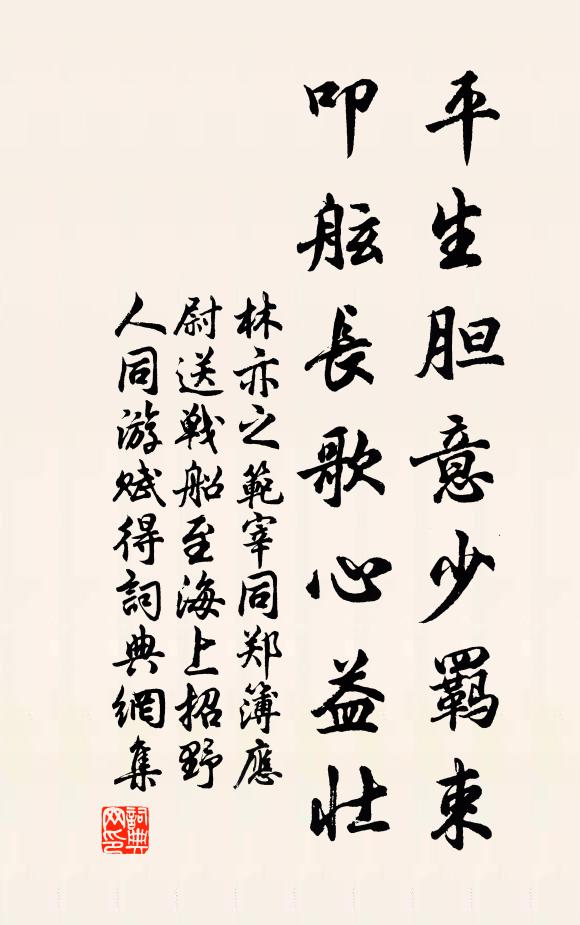 平生胆意少羁束
叩舷長歌心益壯
林亦之範宰同郑簿應
尉送戰船至海上招野
人同游赋得詞典網集
詞典网印